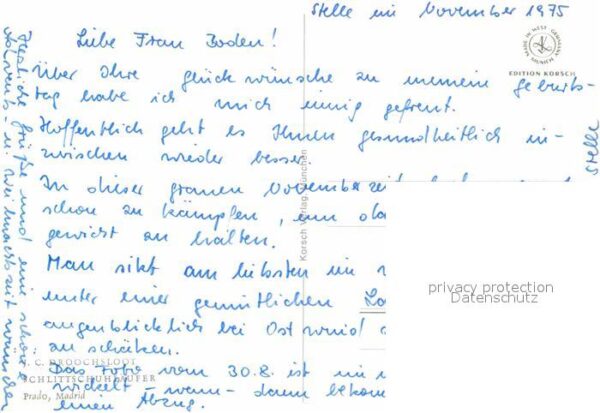 Stelle im November 1975
Liebe Frau Boden!
Über Ihre Glückwünsche zu meinem Geburts-
tag habe ich mich innig gefreut.
Hoffentlich geht es Ihnen gesundheitlich in-
zwischen wieder besser.
In dieser grauen Novemberzeit
schon zu kämpfen, um
gewicht zu halten.
Man sitzt am liebsten in
unter einer gemütlichen
augenblicklich bei Ostwind
zu schätzen.
Das Foto vom 30.8. ist
wickelt – wenn – dann
einen Abzug.
Herzliche Grüße und eine schöne
Advents- u. Weihnachtszeit wünschen
Stelle
MADE IN WEST GERMANY
MUNICH
EDITION KORSCH
Korsch Verlag München
C. DROOCHSLOOT
SCHLITTSCHUHLÄUFER
Prado, Madrid
privacy protection
Datenschutz